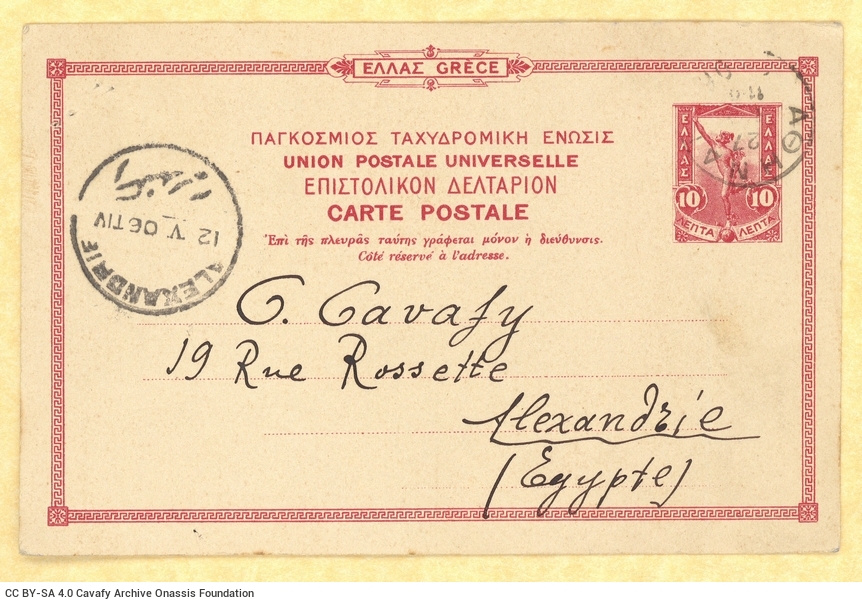 ΕΛΛΑΣ GRÈCE
ΠΑΓΚΟΣΜΙΟΣ ΤΑΧΥΔΡΟΜΙΚΗ ΕΝΩΣΙΣ
UNION POSTALE UNIVERSELLE
ΕΠΙΣΤΟΛΙΚΟΝ ΔΕΛΤΑΡΙΟΝ
CARTE POSTALE
Ἐπὶ τῆς πλευρᾶς ταύτης γράφεται μόνον ἡ διεύθυνσις.
Côté réservé à l'adresse.
ΕΛΛΑΣ
ΕΛΛΑΣ
10 10
ΛΕΠΤΑ ΛΕΠΤΑ
ΑΘΗΝ
27
ALEXANDRIE
12 V 06 TIV
C. Cavafy
19 Rue Rossette
Alexandrie
(Egypte)
CC BY-SA 4.0 Cavafy Archive Onassis Foundation